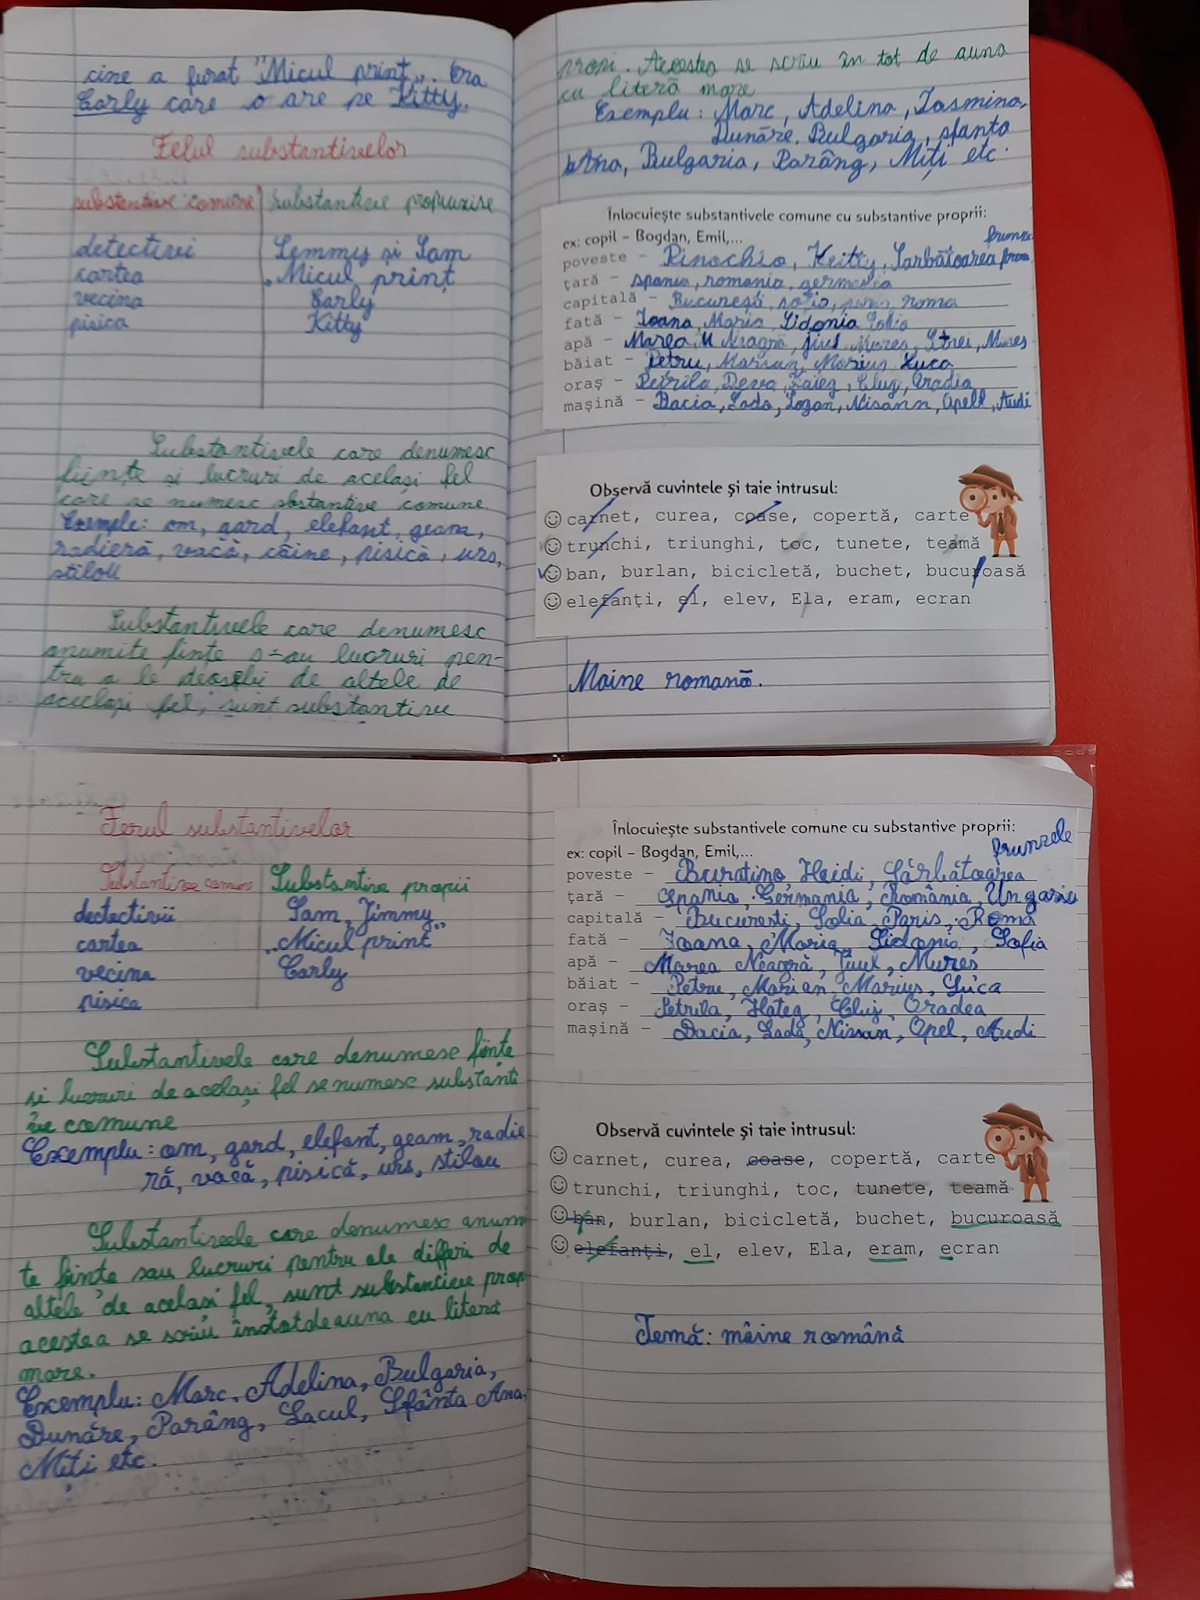 cine a furat "Micul prinț". Era
Carly care o are pe Kitty.
Felul substantivelor
substantive comune
detectivi
cartea
vecina
pisica
Substantive
Lemmy și Sam
„Micul prinț
Carly
Kitty
Substantivele care denumesc
ființe și lucruri de același fel
care se numesc sbstantive comune.
Exemple: om, gard, elefant, geam,
radieră, vacă, câine, pisică, urs,
stilou
Substantivele care denumesc
anumite ființe s-au lucruri pen-
tru a le deosebi de altele de
același fel, sunt substantive
propi. Acestea se scriu în tot de auna
cu literă mare
Exemplu: Marc, Adelina, Iasmina,
Dunăre, Bulgaria, sfanta
Ana, Bulgaria, Parâng, Miți etc.
Înlocuiește substantivele comune cu substantive proprii:
ex: copil – Bogdan, Emil,...
poveste – Pinochio, Keitty, Sarbătoarea frunze
țară – spania, romania, germania
capitală – București, sofia, paris, roma
fată – Ioana, Maria, Sidonia Sofia
apă – Marea Neagră, Jiul Mures, Strei, Mures
băiat – Petru, Marian, Marius Luca
oraș – Petrila, Deva, Hațeg, Cluj, Oradia
mașină – Dacia, Lada, Logan, Nisann, Opell, Audi
Observă cuvintele și taie intrusul:
carnet, curea, coase, copertă, carte
trunchi, triunghi, toc, tunete, teamă
ban, burlan, bicicletă, buchet, bucuroasă
elefanți, el, elev, Ela, eram, ecran
Maine romană.
Ferul substantivelor
Substantive comune
dectectivii
cartea
vecina
pisica
Substantive propii
Sam, Jimmy
„Micul prinț"
Carly
Substantivele care denumesc ființe
si lucruri de același fel se numesc substanti
ve comune
Exemplu: om, gard, elefant, geam, radie
ră, vacă, pisică, urs, stilou
Substantivele care denumesc anumi
te ființe sau lucruri pentru ale diferi de
altele de același fel, sunt substantive prop
acestea se scriu întotdeauna cu litera
mare.
Exemplu: Marc, Adelina, Bulgaria,
Dunăre, Parâng, Lacul, Sfânta Ana,
Miți etc.
Înlocuiește substantivele comune cu substantive proprii:
ex: copil – Bogdan, Emil,...
frunzele
poveste – Buratino Heidi, Sărbătoarea
țară – Spania, Germania, România, Ungaria
capitală – Bucuresti, Sofia Paris, Roma
fată – Ioana, Maria, Sidonia, Sofia
apă – Marea Neagră, Jiul, Mures
băiat – Petru, Marian Marius, Luca
oraș – Petrila, Hateg, Cluj, Oradea
mașină – Dacia, Lada, Nissan, Opel, Audi
Observă cuvintele și taie intrusul:
carnet, curea, coase, copertă, carte
trunchi, triunghi, toc, tunete, teamă
ban, burlan, bicicletă, buchet, bucuroasă
elefanți, el, elev, Ela, eram, ecran
Temă: mâine română